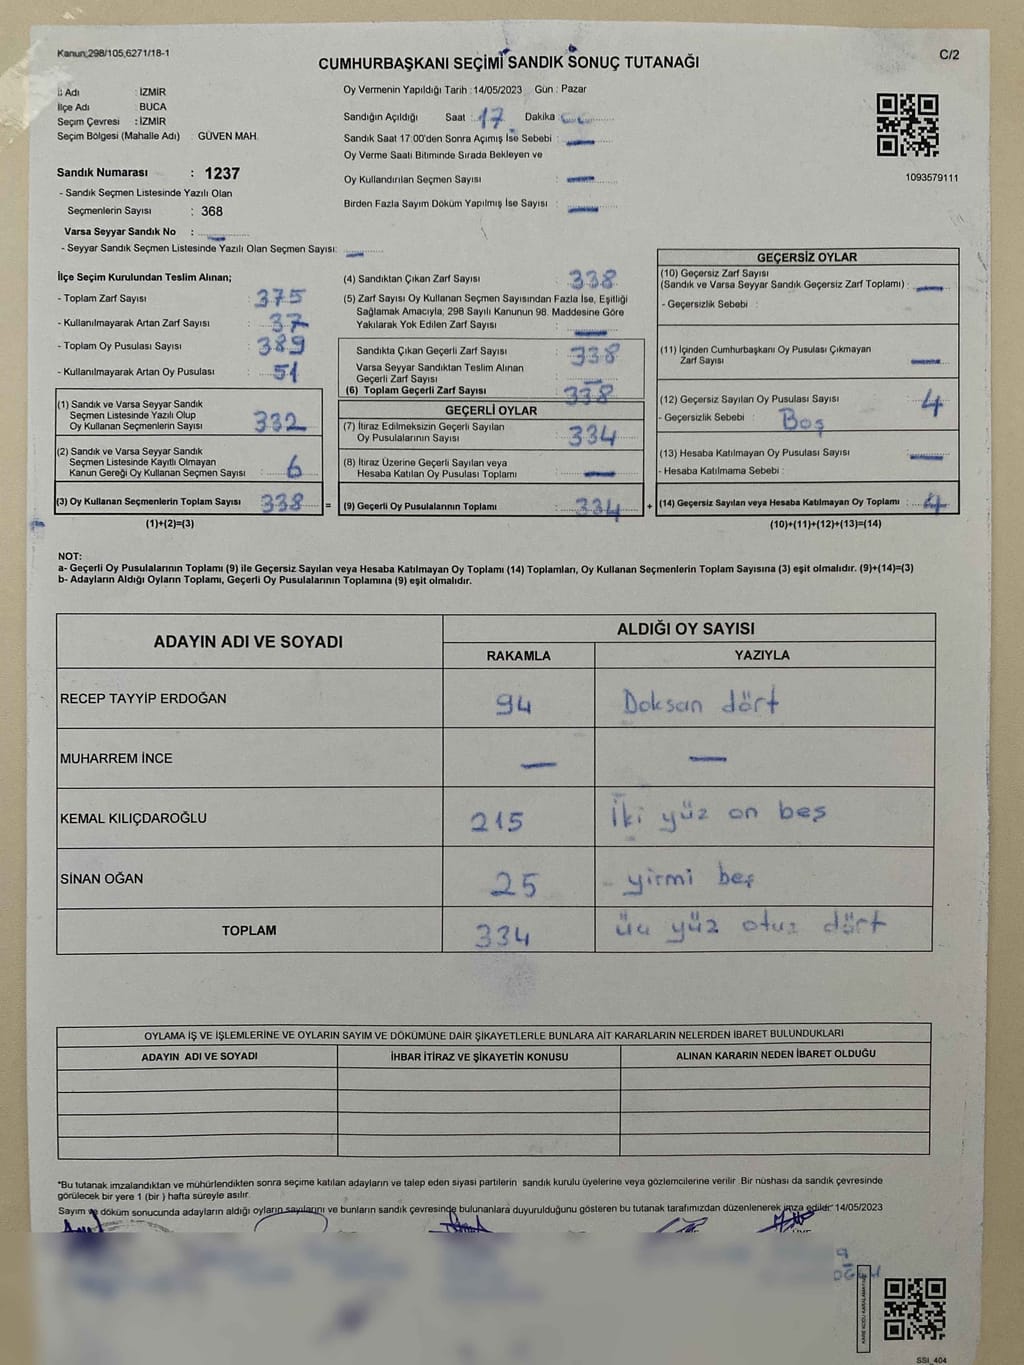 Kanun;298/105,6271/18-1
C/2
CUMHURBAŞKANI SEÇİMİ SANDIK SONUÇ TUTANAĞI
İl Adı : İZMİR
İlçe Adı : BUCA
Seçim Çevresi : İZMİR
Seçim Bölgesi (Mahalle Adı) GÜVEN MAH.
Sandık Numarası : 1237
- Sandık Seçmen Listesinde Yazılı Olan
Seçmenlerin Sayısı : 368
Varsa Seyyar Sandık No : —
- Seyyar Sandık Seçmen Listesinde Yazılı Olan Seçmen Sayısı: —
Oy Vermenin Yapıldığı Tarih : 14/05/2023 Gün : Pazar
Sandığın Açıldığı Saat : 17 Dakika :
Sandık Saat 17:00'den Sonra Açımış İse Sebebi : —
Oy Verme Saati Bitiminde Sırada Bekleyen ve
Oy Kullandırılan Seçmen Sayısı : —
Birden Fazla Sayım Döküm Yapılmış İse Sayısı : —
1093579111
İlçe Seçim Kurulundan Teslim Alınan;
- Toplam Zarf Sayısı : 375
- Kullanılmayarak Artan Zarf Sayısı : 37
- Toplam Oy Pusulası Sayısı : 389
- Kullanılmayarak Artan Oy Pusulası : 51
(1) Sandık ve Varsa Seyyar Sandık
Seçmen Listesinde Yazılı Olup
Oy Kullanan Seçmenlerin Sayısı : 332
(2) Sandık ve Varsa Seyyar Sandık
Seçmen Listesinde Kayıtlı Olmayan
Kanun Gereği Oy Kullanan Seçmen Sayısı : 6
(3) Oy Kullanan Seçmenlerin Toplam Sayısı : 338 =
(1)+(2)=(3)
(4) Sandıktan Çıkan Zarf Sayısı : 338
(5) Zarf Sayısı Oy Kullanan Seçmen Sayısından Fazla İse, Eşitliği
Sağlamak Amacıyla, 298 Sayılı Kanunun 98. Maddesine Göre
Yakılarak Yok Edilen Zarf Sayısı : —
Sandıkta Çıkan Geçerli Zarf Sayısı : 338
Varsa Seyyar Sandıktan Teslim Alınan
Geçerli Zarf Sayısı : —
(6) Toplam Geçerli Zarf Sayısı : 338
GEÇERLİ OYLAR
(7) İtiraz Edilmeksizin Geçerli Sayılan
Oy Pusulalarının Sayısı : 334
(8) İtiraz Üzerine Geçerli Sayılan veya
Hesaba Katılan Oy Pusulası Toplamı : —
(9) Geçerli Oy Pusulalarının Toplamı : 334 +
GEÇERSİZ OYLAR
(10) Geçersiz Zarf Sayısı
(Sandık ve Varsa Seyyar Sandık Geçersiz Zarf Toplamı) : —
- Geçersizlik Sebebi :
(11) İçinden Cumhurbaşkanı Oy Pusulası Çıkmayan
Zarf Sayısı : —
(12) Geçersiz Sayılan Oy Pusulası Sayısı : 4
- Geçersizlik Sebebi : Boş
(13) Hesaba Katılmayan Oy Pusulası Sayısı : —
- Hesaba Katılmama Sebebi :
(14) Geçersiz Sayılan veya Hesaba Katılmayan Oy Toplamı : 4
(10)+(11)+(12)+(13)=(14)
NOT:
a- Geçerli Oy Pusulalarının Toplamı (9) ile Geçersiz Sayılan veya Hesaba Katılmayan Oy Toplamı (14) Toplamları, Oy Kullanan Seçmenlerin Toplam Sayısına (3) eşit olmalıdır. (9)+(14)=(3)
b- Adayların Aldığı Oyların Toplamı, Geçerli Oy Pusulalarının Toplamına (9) eşit olmalıdır.
ADAYIN ADI VE SOYADI ALDIĞI OY SAYISI
RAKAMLA YAZIYLA
RECEP TAYYİP ERDOĞAN 94 Doksan dört
MUHARREM İNCE — —
KEMAL KILIÇDAROĞLU 215 İki yüz on beş
SİNAN OĞAN 25 yirmi beş
TOPLAM 334 üç yüz otuz dört
OYLAMA İŞ VE İŞLEMLERİNE VE OYLARIN SAYIM VE DÖKÜMÜNE DAİR ŞİKAYETLERLE BUNLARA AİT KARARLARIN NELERDEN İBARET BULUNDUKLARI
ADAYIN ADI VE SOYADI İHBAR İTİRAZ VE ŞİKAYETİN KONUSU ALINAN KARARIN NEDEN İBARET OLDUĞU
"Bu tutanak imzalandıktan ve mühürlendikten sonra seçime katılan adayların ve talep eden siyasi partilerin sandık kurulu üyelerine veya gözlemcilerine verilir .Bir nüshası da sandık çevresinde
görülecek bir yere 1 (bir ) hafta süreyle asılır.
Sayım ve döküm sonucunda adayların aldığı oyların sayılarını ve bunların sandık çevresinde bulunanlara duyurulduğunu gösteren bu tutanak tarafımızdan düzenlenerek imza edildi" 14/05/2023
SSI_404